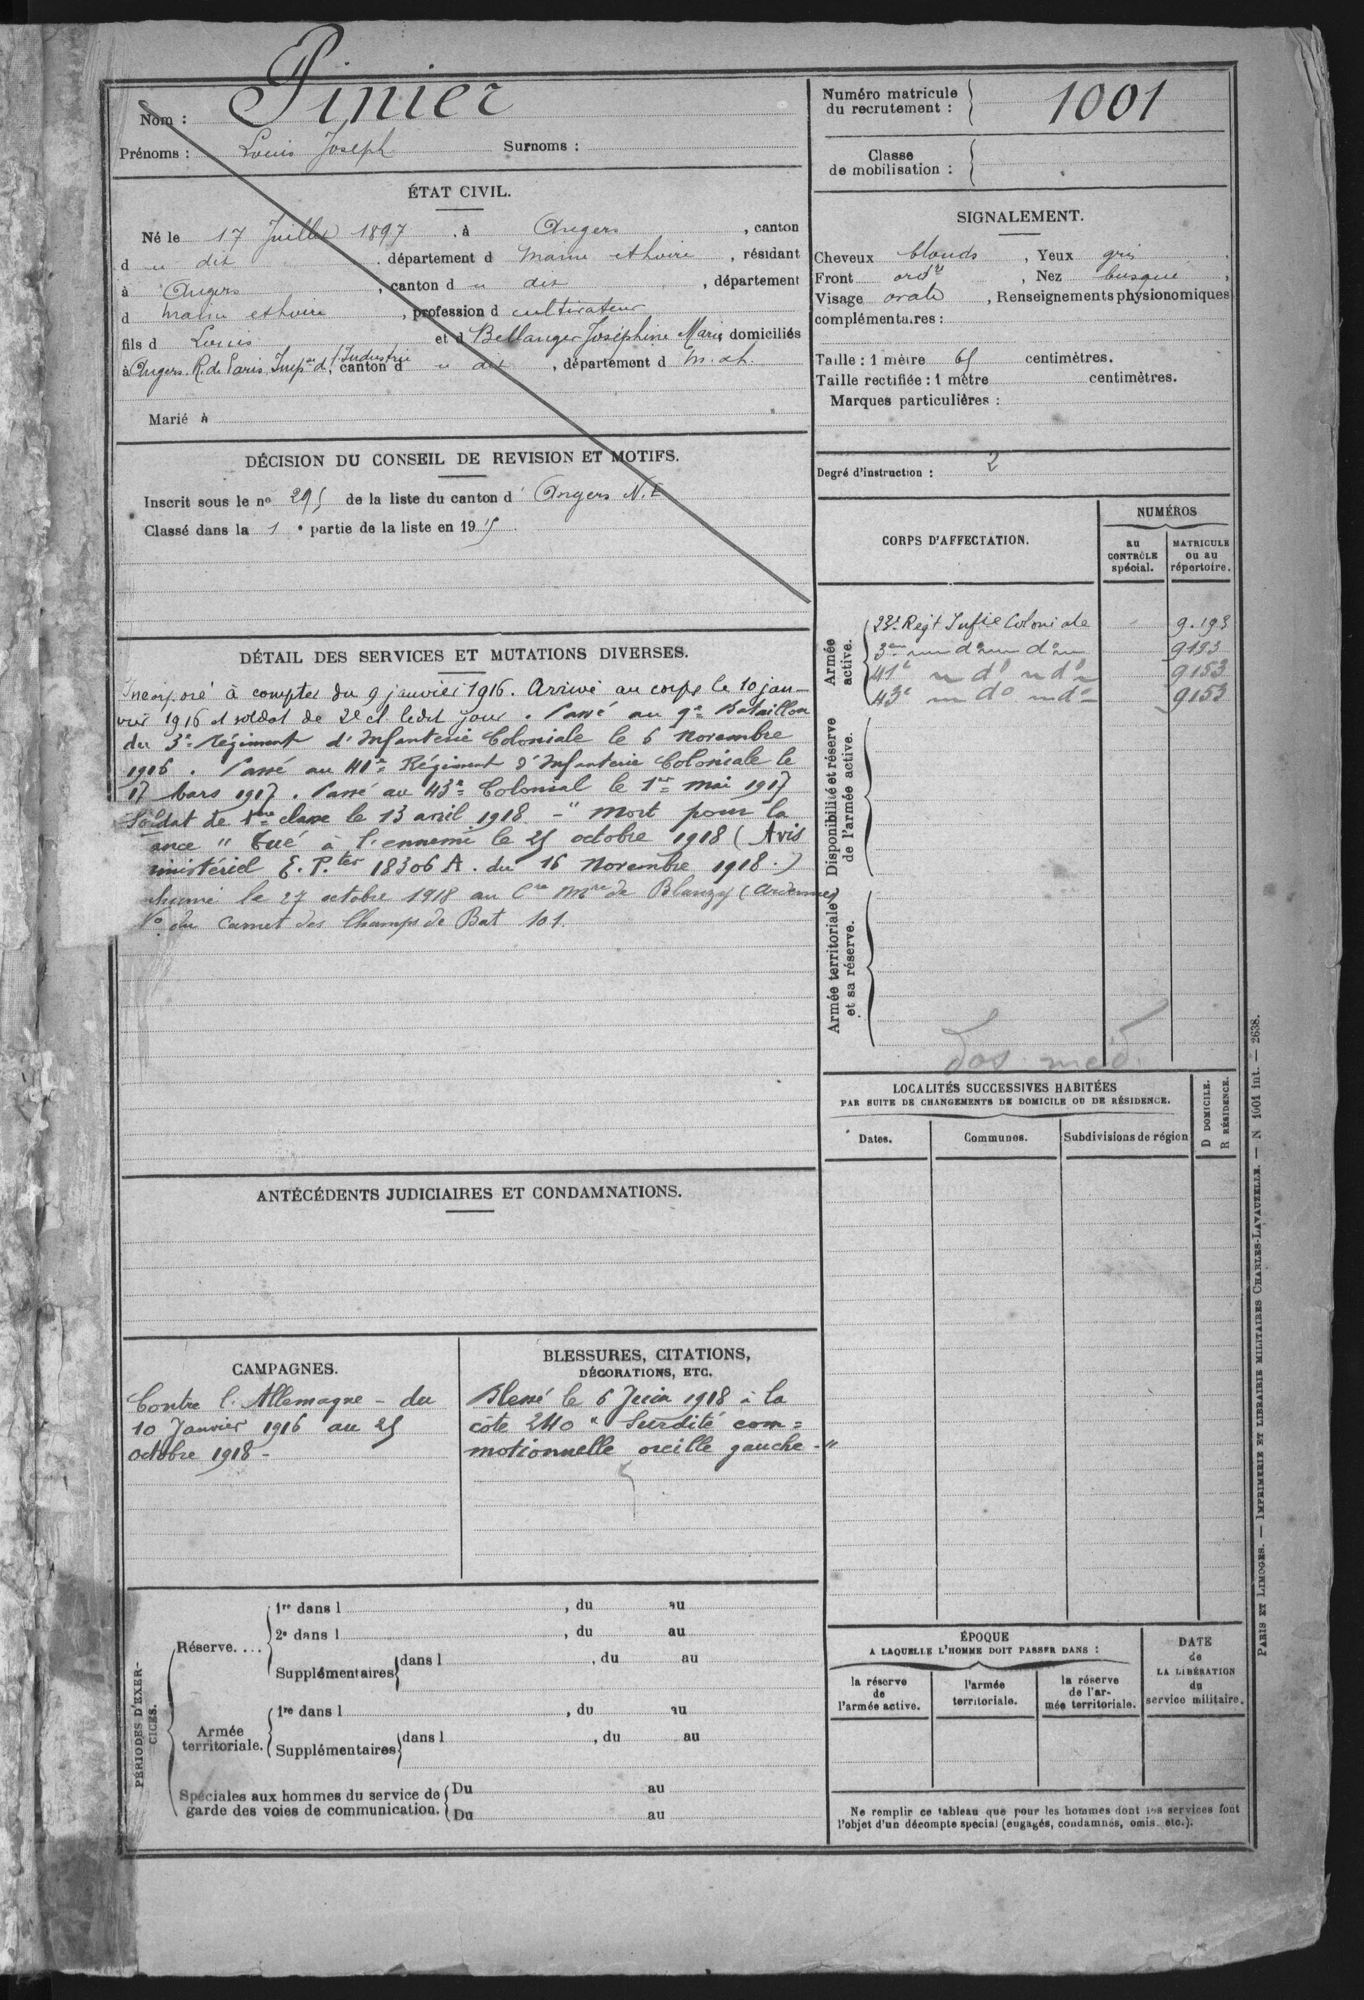 Nom : Pinier
Prénoms : Louis Joseph Surnoms :
ÉTAT CIVIL.
Né le 17 Juillet 1897, à Angers, canton
d u dit, département d Maine et Loire, résidant
à Angers, canton d u dit, département
d Maine et Loire, profession d cultivateur
fils d Louis et d Bellanger Joséphine Marie domiciliés
à Angers. R. de Paris, Imp. d. l'Industrie canton d u dit, département d M. et L.
Marié à
DÉCISION DU CONSEIL DE REVISION ET MOTIFS.
Inscrit sous le no 295 de la liste du canton d' Angers N. E
Classé dans la 1 e partie de la liste en 1915
DÉTAIL DES SERVICES ET MUTATIONS DIVERSES.
Incorporé à compter du 9 janvier 1916. Arrivé au corps le 10 jan-
vier 1916 et soldat de 2e cl ledit jour. Passé au 9e Bataillon
du 3e Régiment d'Infanterie Coloniale le 6 Novembre
1916. Passé au 41e Régiment d'Infanterie Coloniale le
17 Mars 1917. Passé au 43e Colonial le 1er mai 1917
Soldat de 1ère classe le 13 avril 1918 - " Mort pour la
ance " tué à l'ennemi le 25 octobre 1918 (Avis
ministériel E. P.ter 18306 A. du 16 Novembre 1918.)
humé le 27 octobre 1918 au Cre Mre de Blanzy (Ardennes)
No du Carnet des Champs de Bat 101.
ANTÉCÉDENTS JUDICIAIRES ET CONDAMNATIONS.
CAMPAGNES.
Contre l'Allemagne - du
10 Janvier 1916 au 25
octobre 1918 -
BLESSURES, CITATIONS,
DÉCORATIONS, ETC.
Blessé le 6 Juin 1918 à la
côte 240 " Surdité com=
motionnelle oreille gauche - "
PÉRIODES D'EXER-
CICES.
Réserve....
1re dans l , du au
2e dans l , du au
Supplémentaires dans l , du au
Armée
territoriale.
1re dans l , du au
Supplémentaires dans l , du au
Spéciales aux hommes du service de
garde des voies de communication.
Du au
Du au
Numéro matricule
du recrutement : 1001
Classe
de mobilisation :
SIGNALEMENT.
Cheveux blonds, Yeux gris,
Front ordre, Nez busqué,
Visage ovale, Renseignements physionomiques
complémentaires :
Taille : 1 mètre 65 centimètres.
Taille rectifiée : 1 mètre centimètres.
Marques particulières :
Degré d'instruction : 2
CORPS D'AFFECTATION.
NUMÉROS
AU
CONTRÔLE
spécial.
MATRICULE
ou au
répertoire.
Armée
active.
23e Regt Infie Coloniale 9.193
3eme do do 9193
41e do do 9153
43e do do 9153
Disponibilité et réserve
de l'armée active.
Armée territoriale
et sa réserve.
Dos. med.
LOCALITÉS SUCCESSIVES HABITÉES
PAR SUITE DE CHANGEMENTS DE DOMICILE OU DE RÉSIDENCE.
Dates.
Communes.
Subdivisions de région
D DOMICILE.
R RÉSIDENCE.
ÉPOQUE
A LAQUELLE L'HOMME DOIT PASSER DANS :
la réserve
de
l'armée active.
l'armée
territoriale.
la réserve
de l'ar-
mée territoriale.
DATE
de
LA LIBÉRATION
du
service militaire.
Ne remplir ce tableau que pour les hommes dont les services font
l'objet d'un décompte spécial (engagés, condamnés, omis. etc.).
PARIS ET LIMOGES. — IMPRIMERIE ET LIBRAIRIE MILITAIRES CHARLES-LAVAUZELLE. — N 1001 int. — 2638.